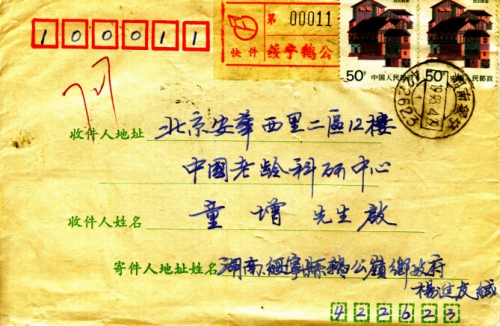 100011
第 00011
快件 绥宁鹅公
50分 中国人民邮政
50分 中国人民邮政
收件人地址 北京安華西里二區12樓
中國老龄科研中心
收件人姓名 童增先生啟
寄件人地址姓名 湖南綏寧縣鵝公嶺鄉政府
楊廷友緘
422623